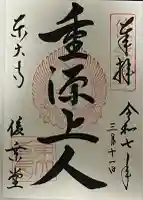 奉拝
令和七年
三月十一日
重源上人
東大寺
俊乗堂